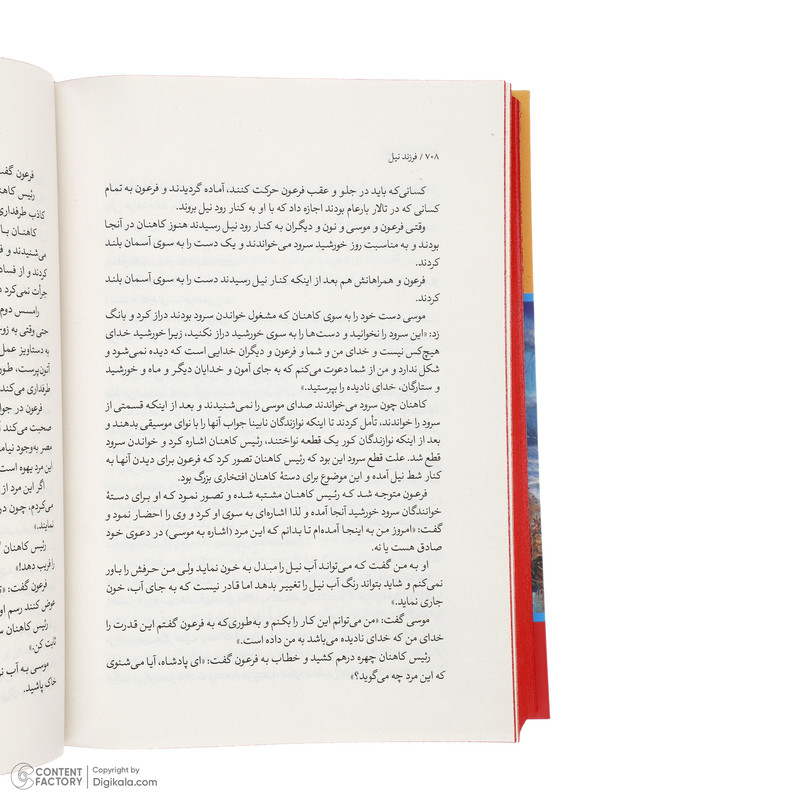 ۷۰۸ / فرزند نیل
کسانی‌که باید در جلو و عقب فرعون حرکت کنند، آماده گردیدند و فرعون به تمام
کسانی که در تالار بارعام بودند اجازه داد که با او به کنار رود نیل بروند.
وقتی فرعون و موسی و نون و دیگران به کنار رود نیل رسیدند هنوز کاهنان در آنجا
بودند و به مناسبت روز خورشید سرود می‌خواندند و یک دست را به سوی آسمان بلند
کردند.
فرعون و همراهانش هم بعد از اینکه کنار نیل رسیدند دست را به سوی آسمان بلند
کردند.
موسی دست خود را به سوی کاهنان که مشغول خواندن سرود بودند دراز کرد و بانگ
زد: «این سرود را نخوانید و دست‌ها را به سوی خورشید دراز نکنید، زیرا خورشید خدای
هیچ‌کس نیست و خدای من و شما و فرعون و دیگران خدایی است که دیده نمی‌شود و
شکل ندارد و من از شما دعوت می‌کنم که به جای آمون و خدایان دیگر و ماه و خورشید
و ستارگان، خدای نادیده را بپرستید.»
کاهنان چون سرود می‌خواندند صدای موسی را نمی‌شنیدند و بعد از اینکه قسمتی از
سرود را خواندند، تأمل کردند تا اینکه نوازندگان نابینا جواب آنها را با نوای موسیقی بدهند و
بعد از اینکه نوازندگان کور یک قطعه نواختند، رئیس کاهنان اشاره کرد و خواندن سرود
قطع شد. علت قطع سرود این بود که رئیس کاهنان تصور کرد که فرعون برای دیدن آنها به
کنار شط نیل آمده و این موضوع برای دستهٔ کاهنان افتخاری بزرگ بود.
فرعون متوجه شد که رئیس کاهنان مشتبه شده و تصور نمود که او برای دستهٔ
خوانندگان سرود خورشید آنجا آمده و لذا اشاره‌ای به سوی او کرد و وی را احضار نمود و
گفت: «امروز من به اینجا آمده‌ام تا بدانم که این مرد (اشاره به موسی) در دعوی خود
صادق هست یا نه.
او به من گفت که می‌تواند آب نیل را مبدل به خون نماید ولی من حرفش را باور
نمی‌کنم و شاید بتواند رنگ آب نیل را تغییر بدهد اما قادر نیست که به جای آب، خون
جاری نماید.»
موسی گفت: «من می‌توانم این کار را بکنم و به‌طوری‌که به فرعون گفتم این قدرت را
خدای من که خدای نادیده می‌باشد به من داده است.»
رئیس کاهنان چهره درهم کشید و خطاب به فرعون گفت: «ای پادشاه، آیا می‌شنوی
که این مرد چه می‌گوید؟»
فرعون گفت
رئیس کاهنا
کاذب طرفداری
کاهنان با
می‌شنیدند و ف
کردند و از فساد
جرأت نمی‌کرد د
رامسس دوم
حتی وقتی به زوج
به دستاویز عمل
آتون‌پرست، طور
طرفداری می‌کند
فرعون در جوا
صحبت می‌کند آ
مصر به‌وجود نیام
این مرد یهوه است
اگر این مرد از
می‌کردم، چون در
نمایند.»
رئیس کاهنان
را فریب دهد!»
فرعون گفت:
عوض کنند رسم او
رئیس کاهنان س
ثابت کن.»
موسی به آب ن
خاک پاشید.
CONTENT FACTORY
Copyright by
Digikala.com